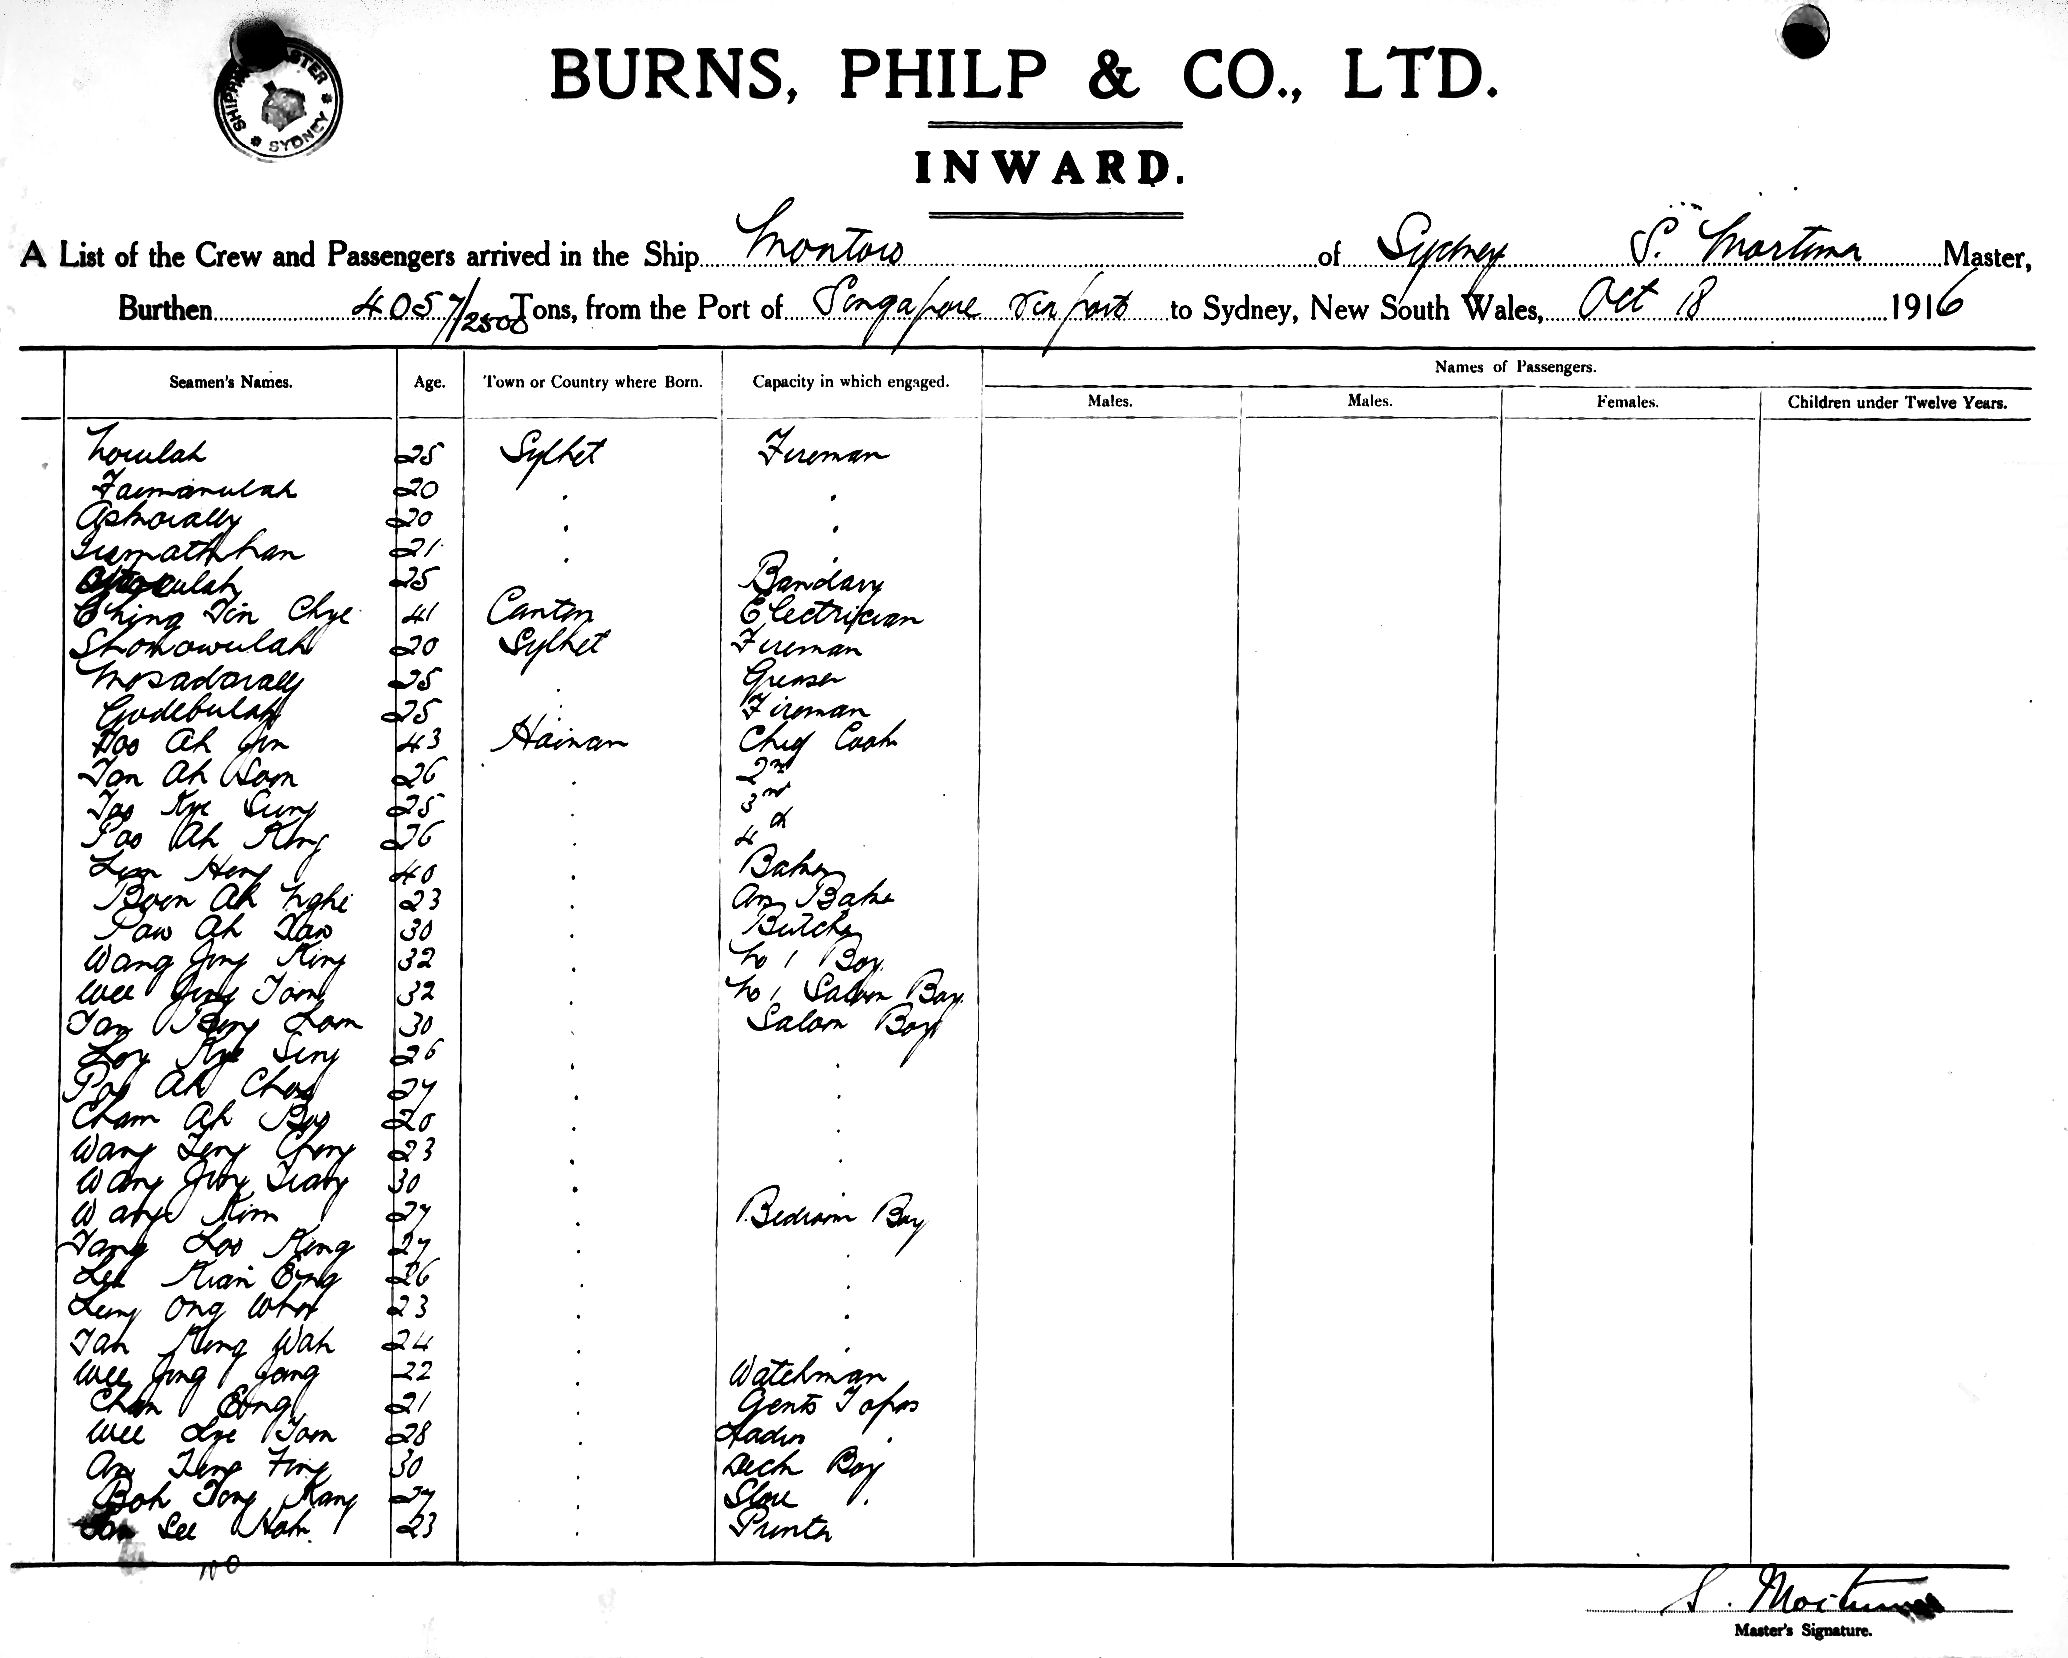 SHIPPING MASTER
SYDNEY
BURNS, PHILP & CO., LTD.
INWARD.
A List of the Crew and Passengers arrived in the Ship Montoro of Sydney S. Mortimer Master,
Burthen 4057/2500 Tons, from the Port of Singapore via ports to Sydney, New South Wales, Oct 18 1916
Names of Passengers.
Seamen's Names. Age. Town or Country where Born. Capacity in which engaged. Males. Males. Females. Children under Twelve Years.
25 Sylhet Fireman
20 . .
20 . .
21 . .
25 Bandary
Ching Tin Chye 41 Canton Electrician
Shonowulah 20 Sylhet Fireman
Mosadorally 25 . Greaser
Godebulah 25 . Fireman
Foo Ah Jin 43 Hainan Chief Cook
Tan Ah Som 26 . 2nd
Kye Sung 25 . 3rd
Poo Ah King 26 . 4th
Lim Heng 40 . Baker
Boon Ah Nghi 23 . Ass Baker
Paw Ah 30 . Butcher
Wang Jong King 32 . No 1 Boy
Wee Jing Toon 32 . No 1 Saloon Boy
Tan Beng Loon 30 . Saloon Boy
Loy Kye Sing 26 . .
Poo Ah Chong 27 . .
Cham Ah Boo 20 . .
Wang Teng Chong 23 . .
Wang Jong 30 .
Wang Kim 27 . Bedroom Boy
Tang Loo King 27 . .
Lee Kian Eng 26 . .
Ong 23 . .
Tan Keng Wah 24 . .
Wee Jong Jong 22 . Watchman
Chan Eong 21 . Gents Topas
Wee Lye Toon 28 . Ladies .
30 . Deck Boy
Boh Tong Kang 27 . Store .
Tan See Hoh 23 . Printer
S. Mortimer
Master's Signature.